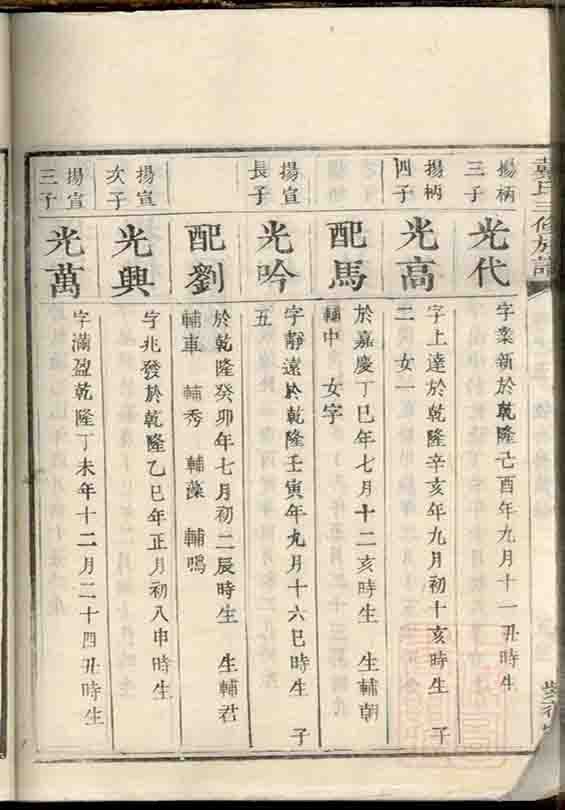 氏三修族譜
揚柄
三子
光代
字業新於乾隆己酉年九月十一丑時生
揚柄
四子
光高
字上達於乾隆辛亥年九月初十亥時生 子
二 女一
配馬
於嘉慶丁巳年七月十二亥時生 生輔朝
輔中 女字
揚宣
長子
光吟
字靜遠於乾隆壬寅年九月十六巳時生 子
五
配劉
於乾隆癸卯年七月初二辰時生 生輔君
輔車 輔秀 輔藻 輔鳴
揚宣
次子
光興
字兆發於乾隆乙巳年正月初八申時生
揚宣
三子
光萬
字滿盈乾隆丁未年十二月二十四丑時生